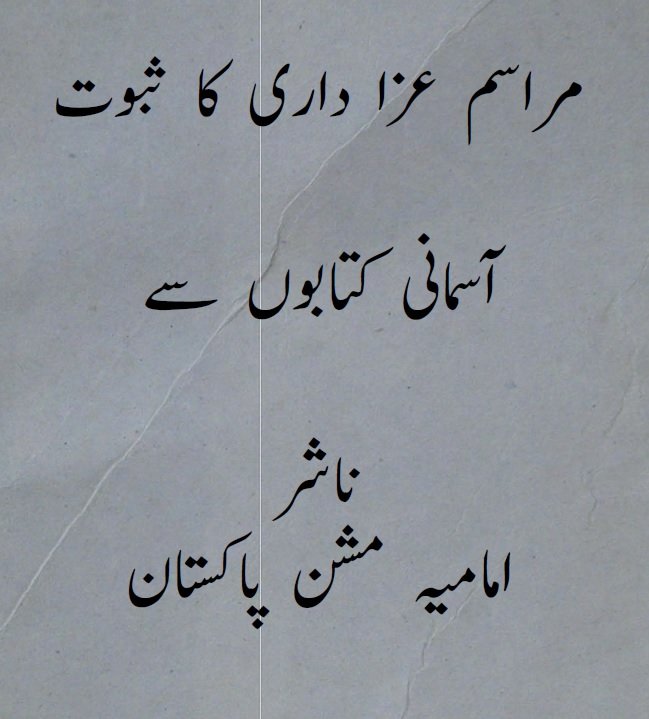 مراسم عزا داری کا ثبوت
آسمانی کتابوں سے
ناشر
امامیہ مشن پاکستان